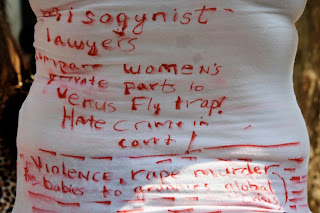 misogynist
lawyers
compare women's
private parts to
Venus Fly trap!
Hate Crime in
court
Violence, rape murder
babies to global